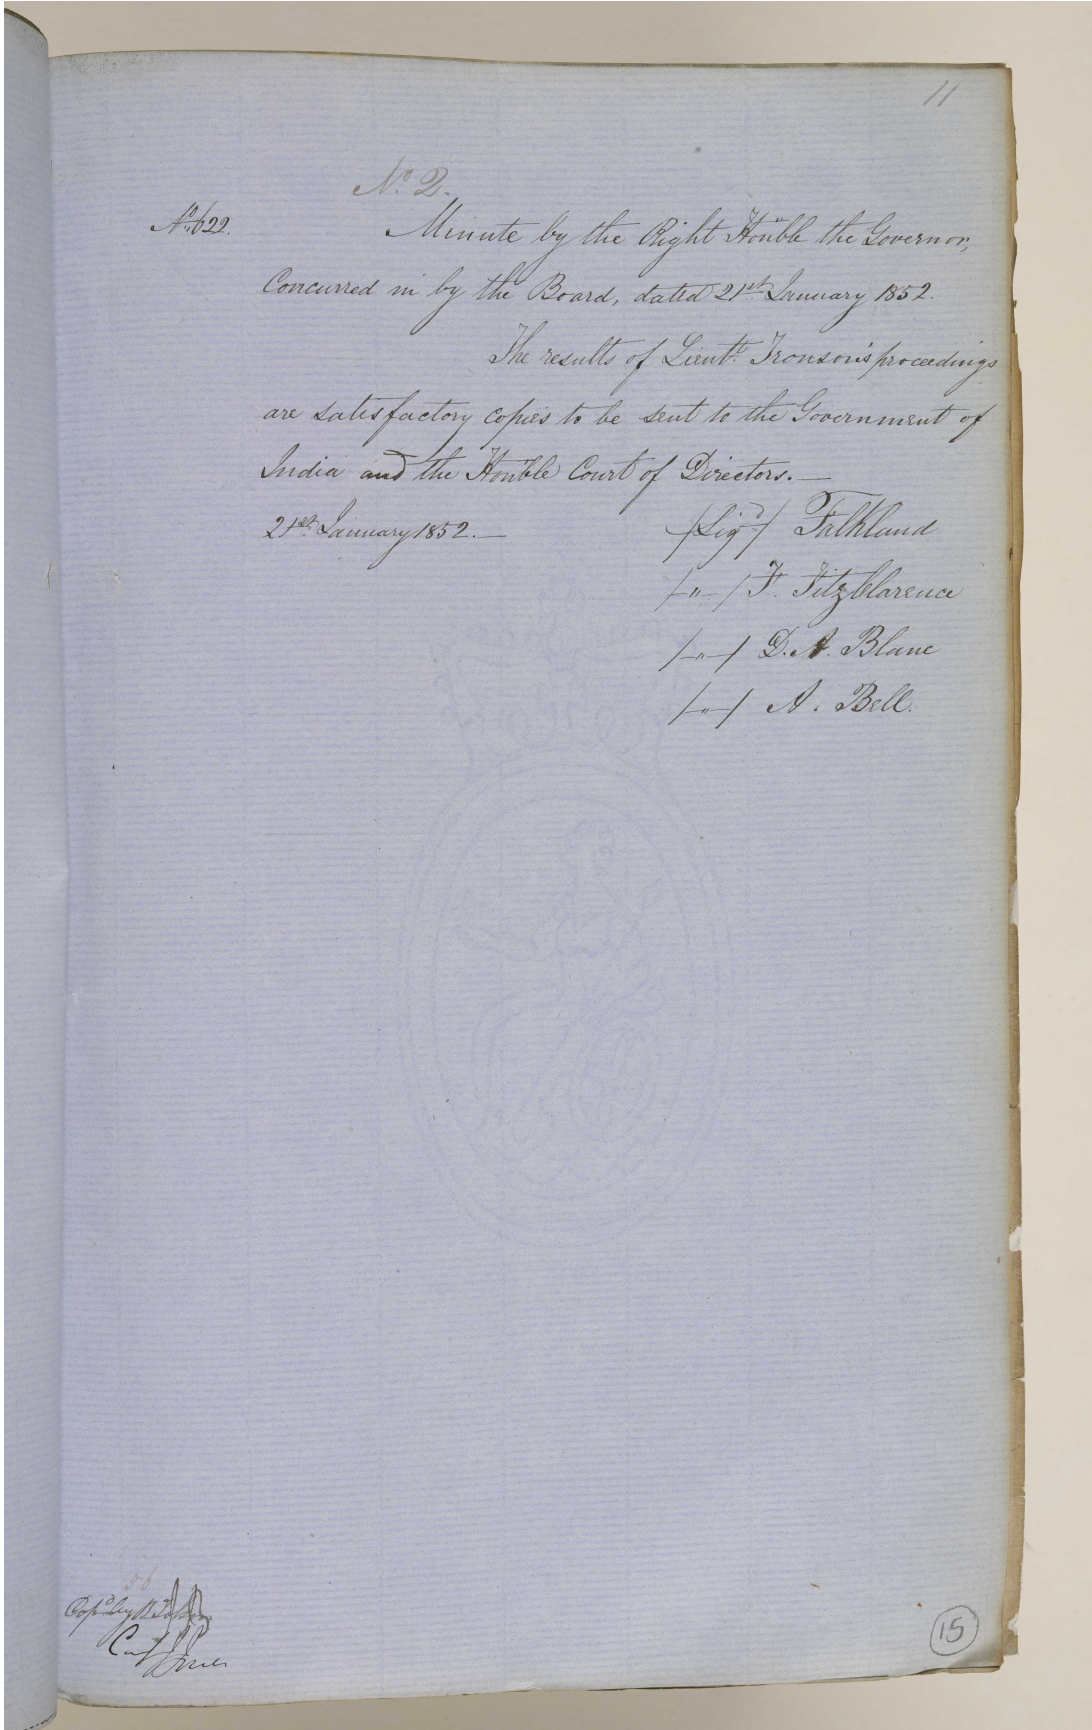 11
No. 2.
No. 622.
Minute by the Right Honble the Governor,
Concurred in by the Board, dated 21st January 1852.
The results of Lieutt. Tronson's proceedings
are satisfactory copies to be sent to the Government of
India and the Honble Court of Directors. —
21st January 1852. —
/Sigd/ Falkland
/-"-/ F. FitzClarence
/-"-/ D. A. Blane
/-"-/ A. Bell.
56
Copd by
15